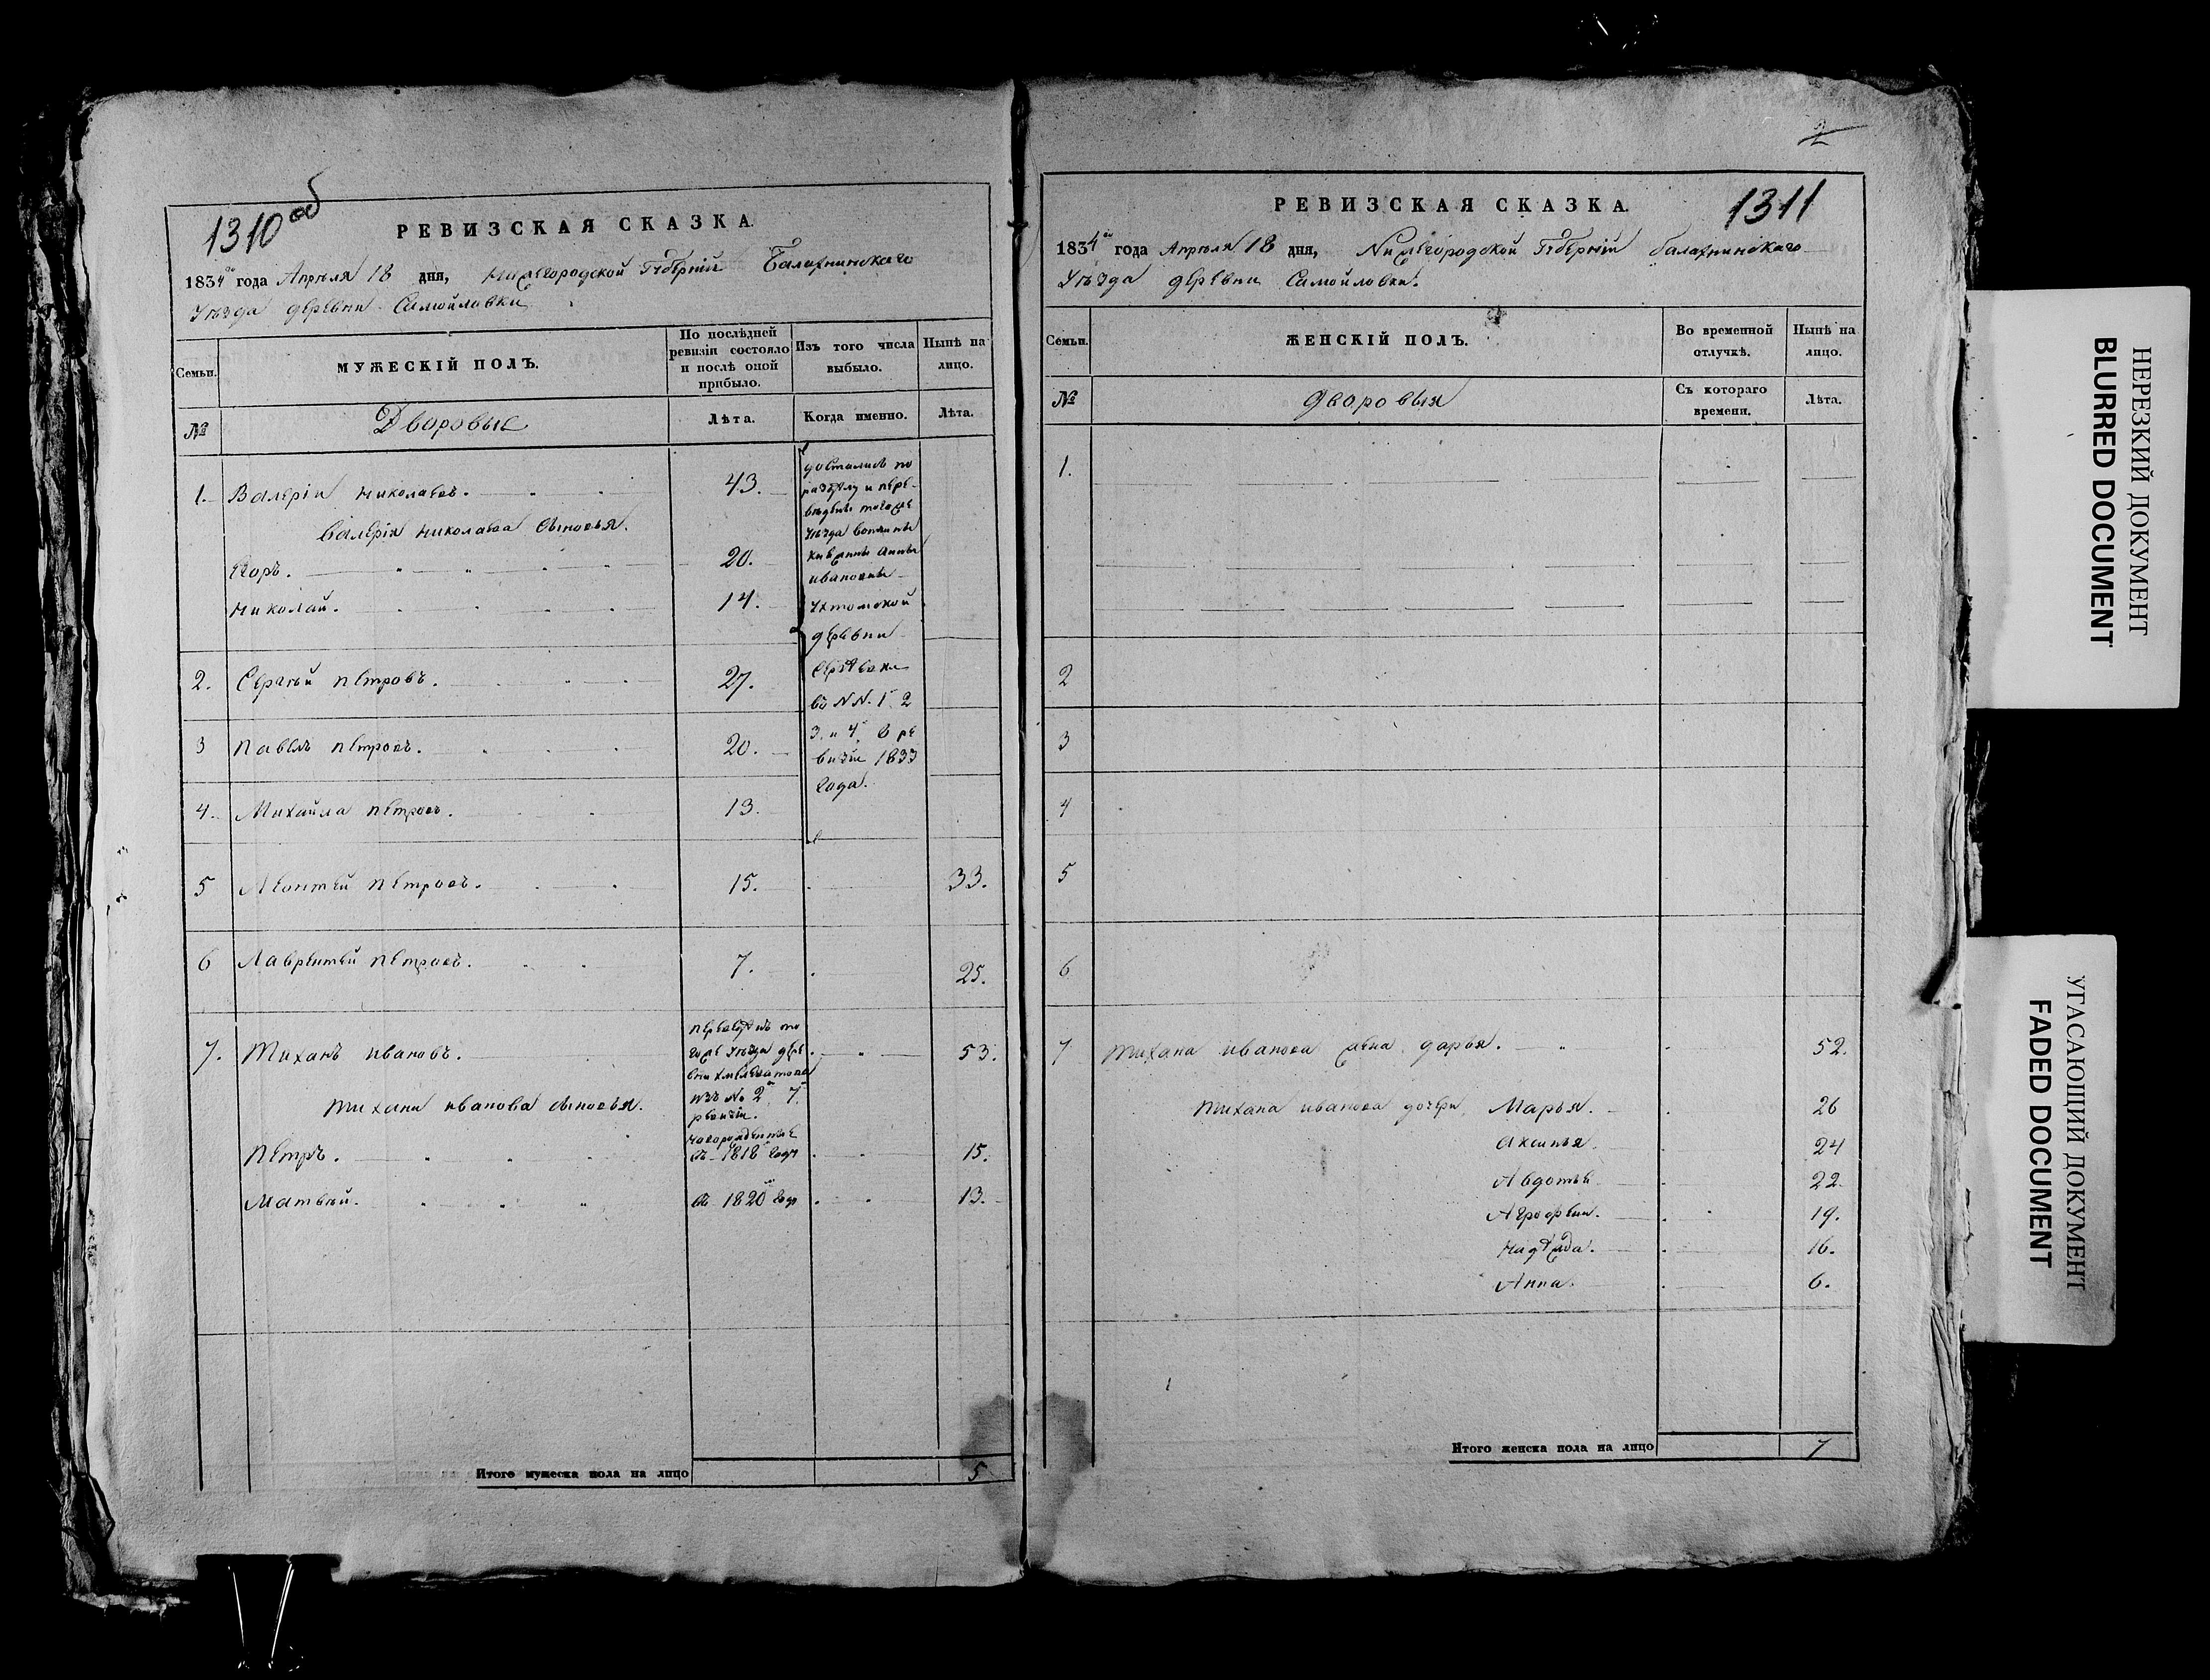 1310 об
РЕВИЗСКАЯ СКАЗКА.
1834го года Апреля 18 дня, Нижегородской Губернии Балахнинского
Уезда деревни Самойловки
Семьи.
МУЖЕСКІЙ ПОЛЪ.
По послѣдней
ревизіи состояло
и послѣ оной
прибыло.
Изъ того числа
выбыло.
Нынѣ на
лицо.
№
Дворовые
Лѣта.
Когда именно.
Лѣта.
1. Валерiи Николаевъ. 43.
Валерiя Николаева сыновья.
Егоръ. 20.
Николай. 14.
достались по
разделу и пере-
ведены тогоже
Уезда
княжны Анны
Ивановны
Ухтомской
деревни
въ NN. 1. 2
3. и 4. в ре
визiи 1833
года.
2. Сергей Петровъ. 27.
3 Павелъ Петровъ. 20.
4. Михайла Петровъ. 13.
5 Леонтей Петровъ. 15. 33.
6 Лаврентей Петровъ. 7. 25.
7. Тиханъ Ивановъ. 53.
переведенъ то
гоже Уезда дере
вни
изъ № 2й 7й
ревизiи.
Тихана Иванова сыновья.
новорожденные
Петръ. въ 1818м году 15.
Матвей. въ 1820м году 13.
Итого мужеска пола на лицо 5
2
1311
РЕВИЗСКАЯ СКАЗКА.
1834го года Апреля 18 дня, Нижегородской Губернiи Балахнинскаго
Уезда деревни Самойловки.
Семьи.
ЖЕНСКІЙ ПОЛЪ.
Во временной
отлучкѣ.
Нынѣ на
лицо.
№
Дворовыя
Съ котораго
времени.
Лѣта.
1.
2
3
4
5
6
7 Тихана Иванова жена Дарья. 52.
Тихана Иванова дочери Марья. 26
Аксинья. 24
Авдотья 22.
Агрофена. 19.
Надежда. 16.
Анна. 6.
Итого женска пола на лицо 7
НЕРЕЗКИЙ ДОКУМЕНТ
BLURRED DOCUMENT
УГАСАЮЩИЙ ДОКУМЕНТ
FADED DOCUMENT